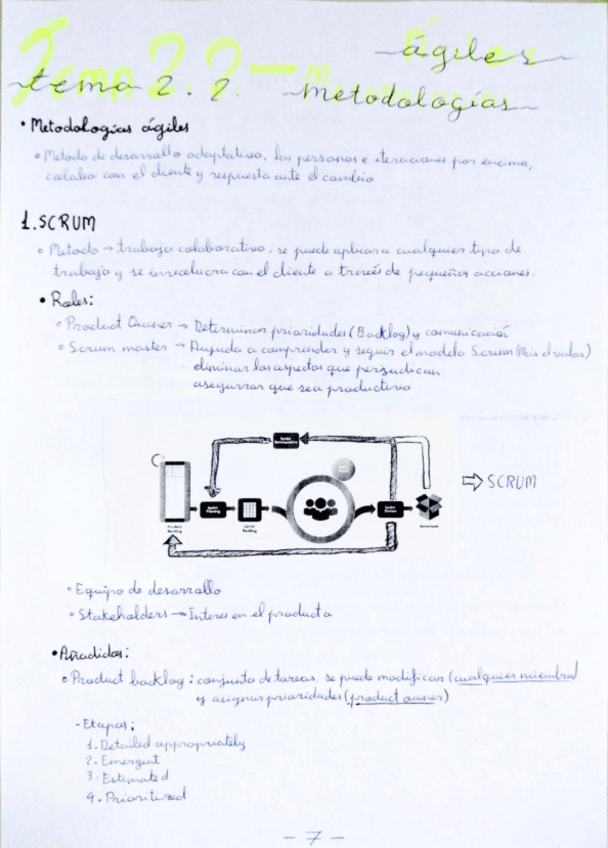 Tema 2.2 - Metodologías ágiles
• Metodologías ágiles
• Metodo de desarrollo adaptativo, las personas e iteraciones por encima,
colabo con el cliente y respuesta ante el cambio
1. SCRUM
• Metodo → trabajo colaborativo, se puede aplicar a cualquier tipo de
trabajo y se involucra con el cliente a través de pequeñas acciones.
• Roles:
• Product Owner → Determinar prioridades (Backlog) y comunicación
• Scrum master → Ayuda a comprender y seguir el modelo Scrum (Mais el valor)
eliminar los aspectos que perjudican
asegurrar que sea productivo
Sprint Planning
Sprint Backlog
Sprint Review
Product Backlog
⇨ SCRUM
• Equipo de desarrollo
• Stakeholders → Interes en el producto
• Añadidos:
• Product backlog: conjunto de tareas, se puede modificar (cualquier miembro)
y asignar prioridades (product owner)
- Etapas:
1. Detailed appropriately
2. Emergent
3. Estimated
4. Prioritized
- 7 -